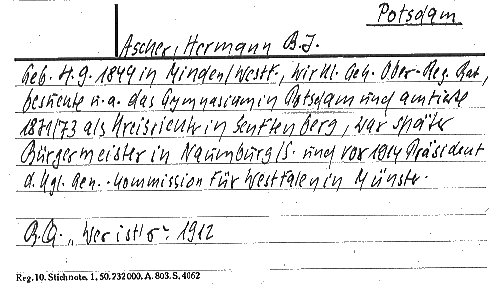 Potsdam
Ascher, Hermann B.J.
Geb. 4.9.1844 in Minden/Westf., Wirkl. Geh. Ober-Reg. Rat,
besuchte u.a. das Gymnasium in Potsdam und amtierte
1871/73 als Kreisrichter in Senftenberg, war später
Bürgermeister in Naumburg/S. und vor 1914 Präsident
d. Kgl. Gen.-Kommission für Westfalen in Münster.
"Wer ist's" 1912
Reg. 10. Stichnote. 1, 50. 232 000. A. 803. S. 4062